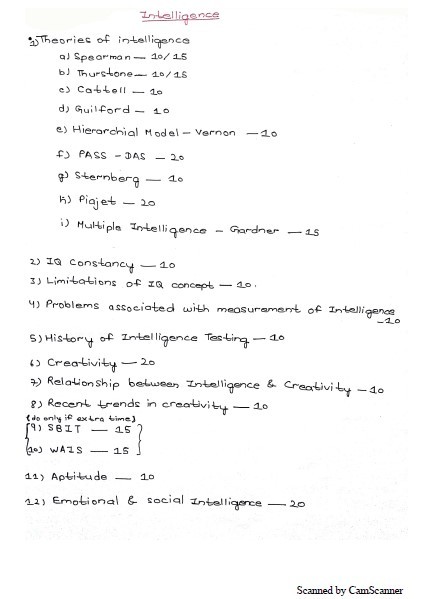 Intelligence
1) Theories of intelligence
a) Spearman — 10/15
b) Thurstone — 10/15
c) Cattell — 10
d) Guilford — 10
e) Hierarchial Model - Vernon — 10
f) PASS - DAS — 20
g) Sternberg — 10
h) Piajet — 20
i) Multiple Intelligence - Gardner — 15
2) IQ Constancy — 10
3) Limitations of IQ concept — 10.
4) Problems associated with measurement of Intelligence
-10
5) History of Intelligence Testing — 10
6) Creativity — 20
7) Relationship between Intelligence & Creativity - 10
8) Recent trends in creativity — 10
[do only if extra time]
9) SBIT — 15
10) WAIS — 15
11) Aptitude — 10
12) Emotional & social Intelligence — 20
Scanned by CamScanner